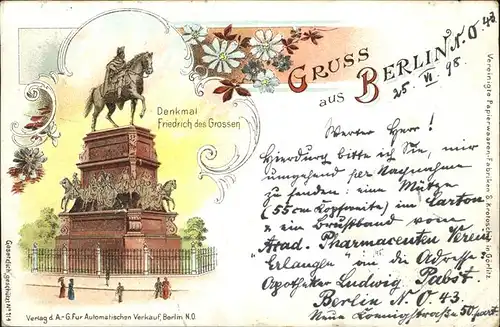 GRUSS
aus BERLIN N.O. 43.
25. VI 98
Denkmal
Friedrich des Grossen
Werter Herr!
Hierdurch bitte ich Sie, mir
umgehend per Nachnahme
zu senden: eine Mütze
(55 cm Kopfweite) im Carton
& ein Brustband vom
"Akad. Pharmaceuten Verein
Erlangen" an die Adresse
Apotheker Ludwig Pabst.
Berlin N. O. 43.
Neue Koenigstrasse 50. part.
Verlag d. A.-G. Für Automatischen Verkauf, Berlin N.O.
Gesetzlich geschützt No
Vereinigte Papierwaaren-Fabriken S. Krotoschin, Görlitz.